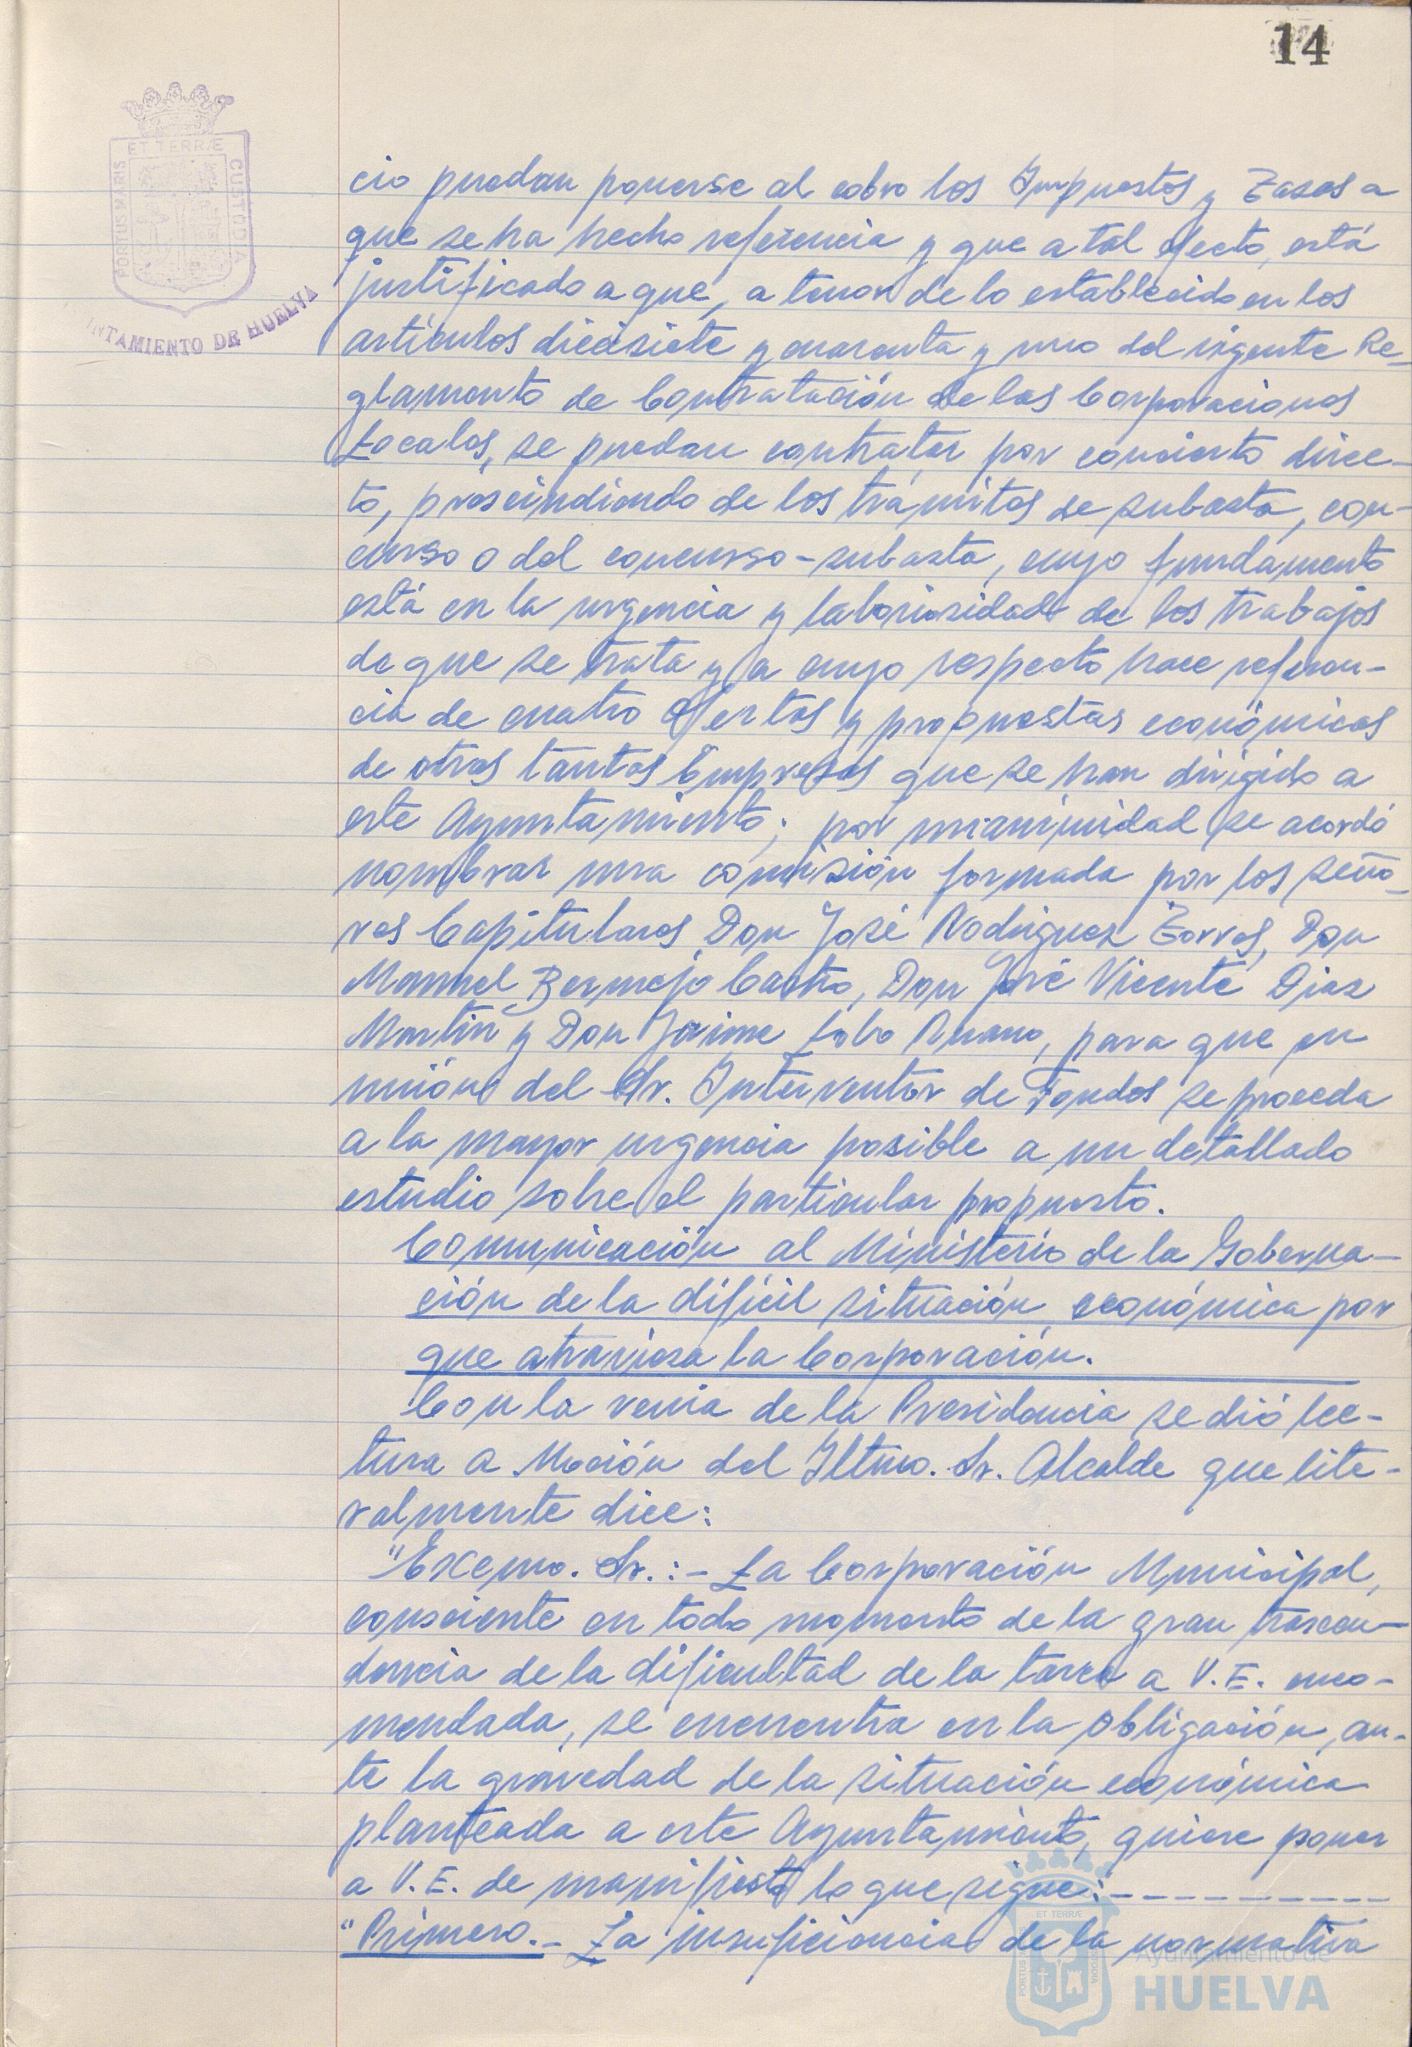 14
ET TERRÆ
PORTUS MARIS
CUSTODIA
NTAMIENTO DE HUELVA
cio puedan ponerse al cobro los Impuestos y Tasas a
que se ha hecho referencia y que a tal efecto, está
justificado a que, a tenor de lo establecido en los
artículos diecisiete y cuarenta y uno del vigente Re-
glamento de Contratación de las Corporaciones
Locales, se puedan contratar por concierto direc-
to, prescindiendo de los trámites de subasta, con-
curso o del concurso-subasta, cuyo fundamento
está en la urgencia y laboriosidad de los trabajos
de que se trata y a cuyo respecto hace referen-
cia de cuatro Ofertas y propuestas económicas
de otras tantas Empresas que se han dirigido a
este Ayuntamiento; por unanimidad se acordó
nombrar una comisión formada por los Seño-
res Capitulares Don José Rodriguez Zorros, Don
Manuel Bermejo Castro, Don José Vicente Diaz
Martín y Don Jaime Lobo Ruano, para que en
unión del Sr. Interventor de Fondos se proceda
a la mayor urgencia posible a un detallado
estudio sobre el particular propuesto.
Comunicación al Ministerio de la Goberna-
ción de la difícil situación económica por
que atraviesa la Corporación.
Con la venia de la Presidencia se dió lec-
tura a Moción del Iltmo. Sr. Alcalde que lite-
ralmente dice:
"Excmo. Sr.:- La Corporación Municipal,
consciente en todo momento de la gran trascen-
dencia de la dificultad de la tarea a V.E. enco-
mendada, se encuentra en la obligación, an-
te la gravedad de la situación económica
planteada a este Ayuntamiento, quiere poner
a V.E. de manifiesto lo que sigue:----------
"Primero.- La insuficiencia de la normativa
Ayuntamiento de
HUELVA